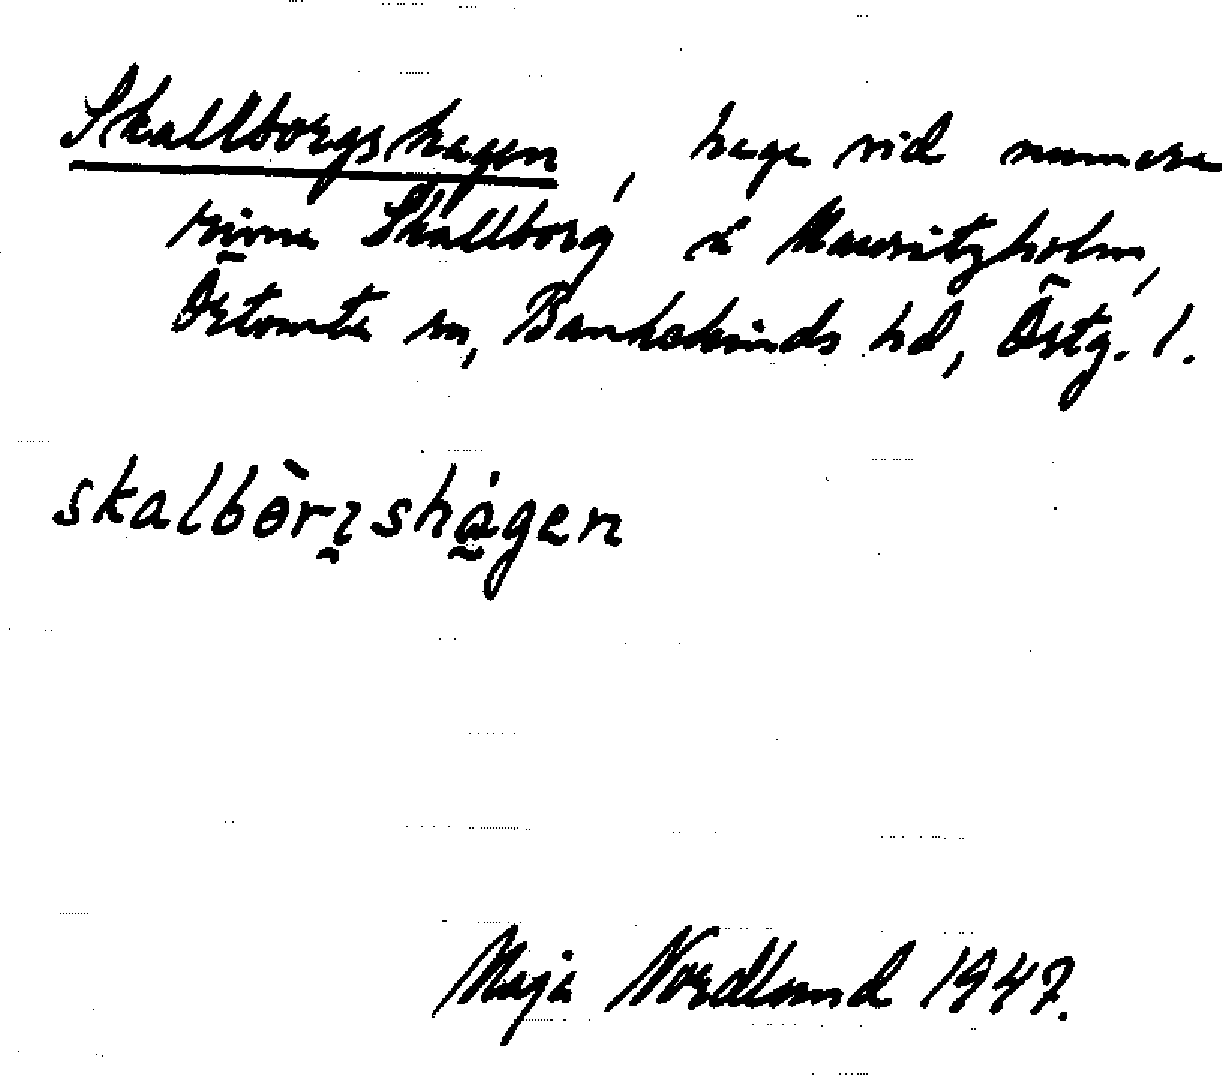 Skallborgshagen, hage vid numera
rivna Skallborg å Mauritzholm,
Östomta sn, Bankekinds hd, Östg. l.
skalbòrʒshágen
Maja Nordlund 1947.